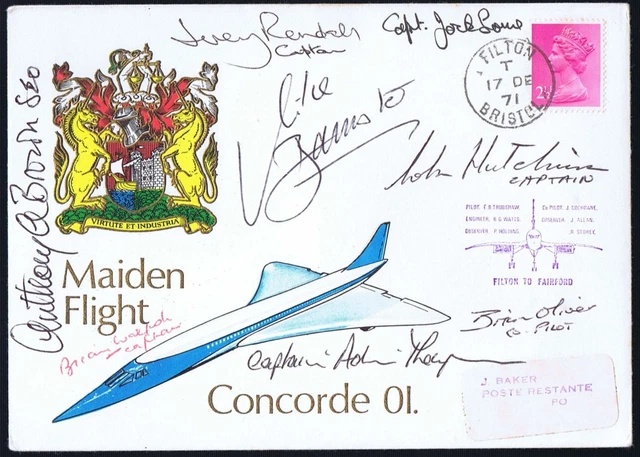 Jeremy Rendell
Captain
Capt. Jock Lowe
FILTON
T
17 DE
71
BRISTOL
2½
Mike
Bannister
John Hutchinson
CAPTAIN
Anthony A Brown SEO
VIRTUTE ET INDUSTRIA
PILOT. E.B.TRUBSHAW. Co PILOT. J. COCHRANE.
ENGINEER. B.G. WATTS. OBSERVER J. ALLAN.
OBSERVER P. HOLDING. R. STOREE.
FILTON TO FAIRFORD
Maiden
Flight
Brian Walpole
Captain
Brian Oliver
Captain Adrian Thompson
Concorde 01.
J BAKER
POSTE RESTANTE
PO